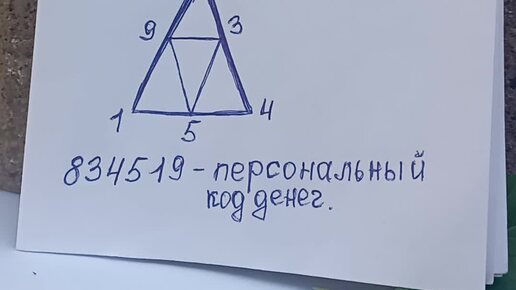 9 3
1 5 4
834519 - персональный
код денег.